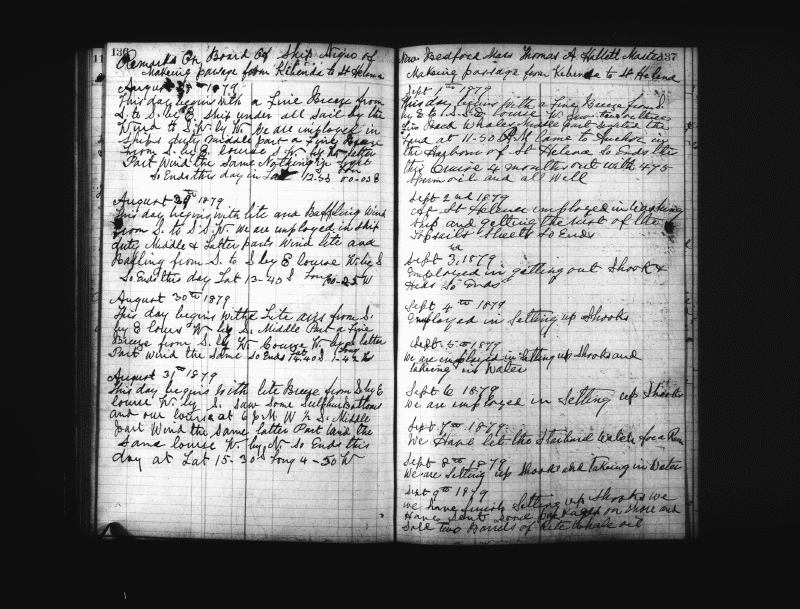 136
Remarks On Board Of Ship Niger of
Makeing passage from Kihenda to St Helena
August 1879
This day begins with a Fine Breeze from
S. to S. by E. Ship under all Sail by the
Wind to S. W. by W. We are imployed in
Ships duty middle part a Fine Breeze
from S. by E. Course W. by latter
Part Wind the Same Nothing in Sight
So Ends this day in Lat 13-53 Lon 00-05 E
August 29th 1879
This day begins with lite and Baffling Wind
from S. to S.S.W. We are imployed in ship
duty Middle & Latter parts Wind lite and
Baffling from S. to S by E Course W. by S
So Ends this day Lat 13-40 S Long 00-25 W
August 30th 1879
This day begins with Lite airs from S.
by E Cours W. by S. Middle Part a Fine
Breeze from S. by W. Course W. by S latter
Part Wind the Same So Ends Lat 14-40 S Long
August 31st 1879
This day begins With lite Breeze from S by E
Course W. by S. Saw Some Sulphur Bottoms
and our Course at 6 P.M. W. S. Middle
Part Wind the Same latter Part Wind the
Same Course W. by N. So Ends this
day at Lat 15-30 S Long 4-50 W
New Bedford Mass Thomas A. Hallett Master 137
Makeing passage from Kihenda to St Helena
Sept 1st 1879
This day begins With a Fine Breeze from S.
by E to S.S.E. Course W.
Fin Back Whales Middle part Sighted the
land at 11-50 P.M. Came to Anchor in
the Harbour of St Helena So Ends the
this Cruise 4 months out with 475
Sperm oil and all Well
Sept 2nd 1879
At St Helena imployed in
Ship and getting the rest of the
topsails Sheets So Ends
Sept 3, 1879
Employed in getting out Shook &
Heds So Ends
Sept 4th 1879
Employed in Setting up Shooks
Sept 5th 1879
We are imployed in Setting up Shooks and
taking in Water
Sept 6 1879
We are imployed in Setting up Shooks
Sept 7th 1879
We Have let the Starbord Watch for a Run
Sept 8th 1879
We are Setting up Shooks and Taking in Water
Sept 9th 1879
We have finish Setting up Shooks we
Have Sent Some on Shore and
Sold two Barrels of Whale oil